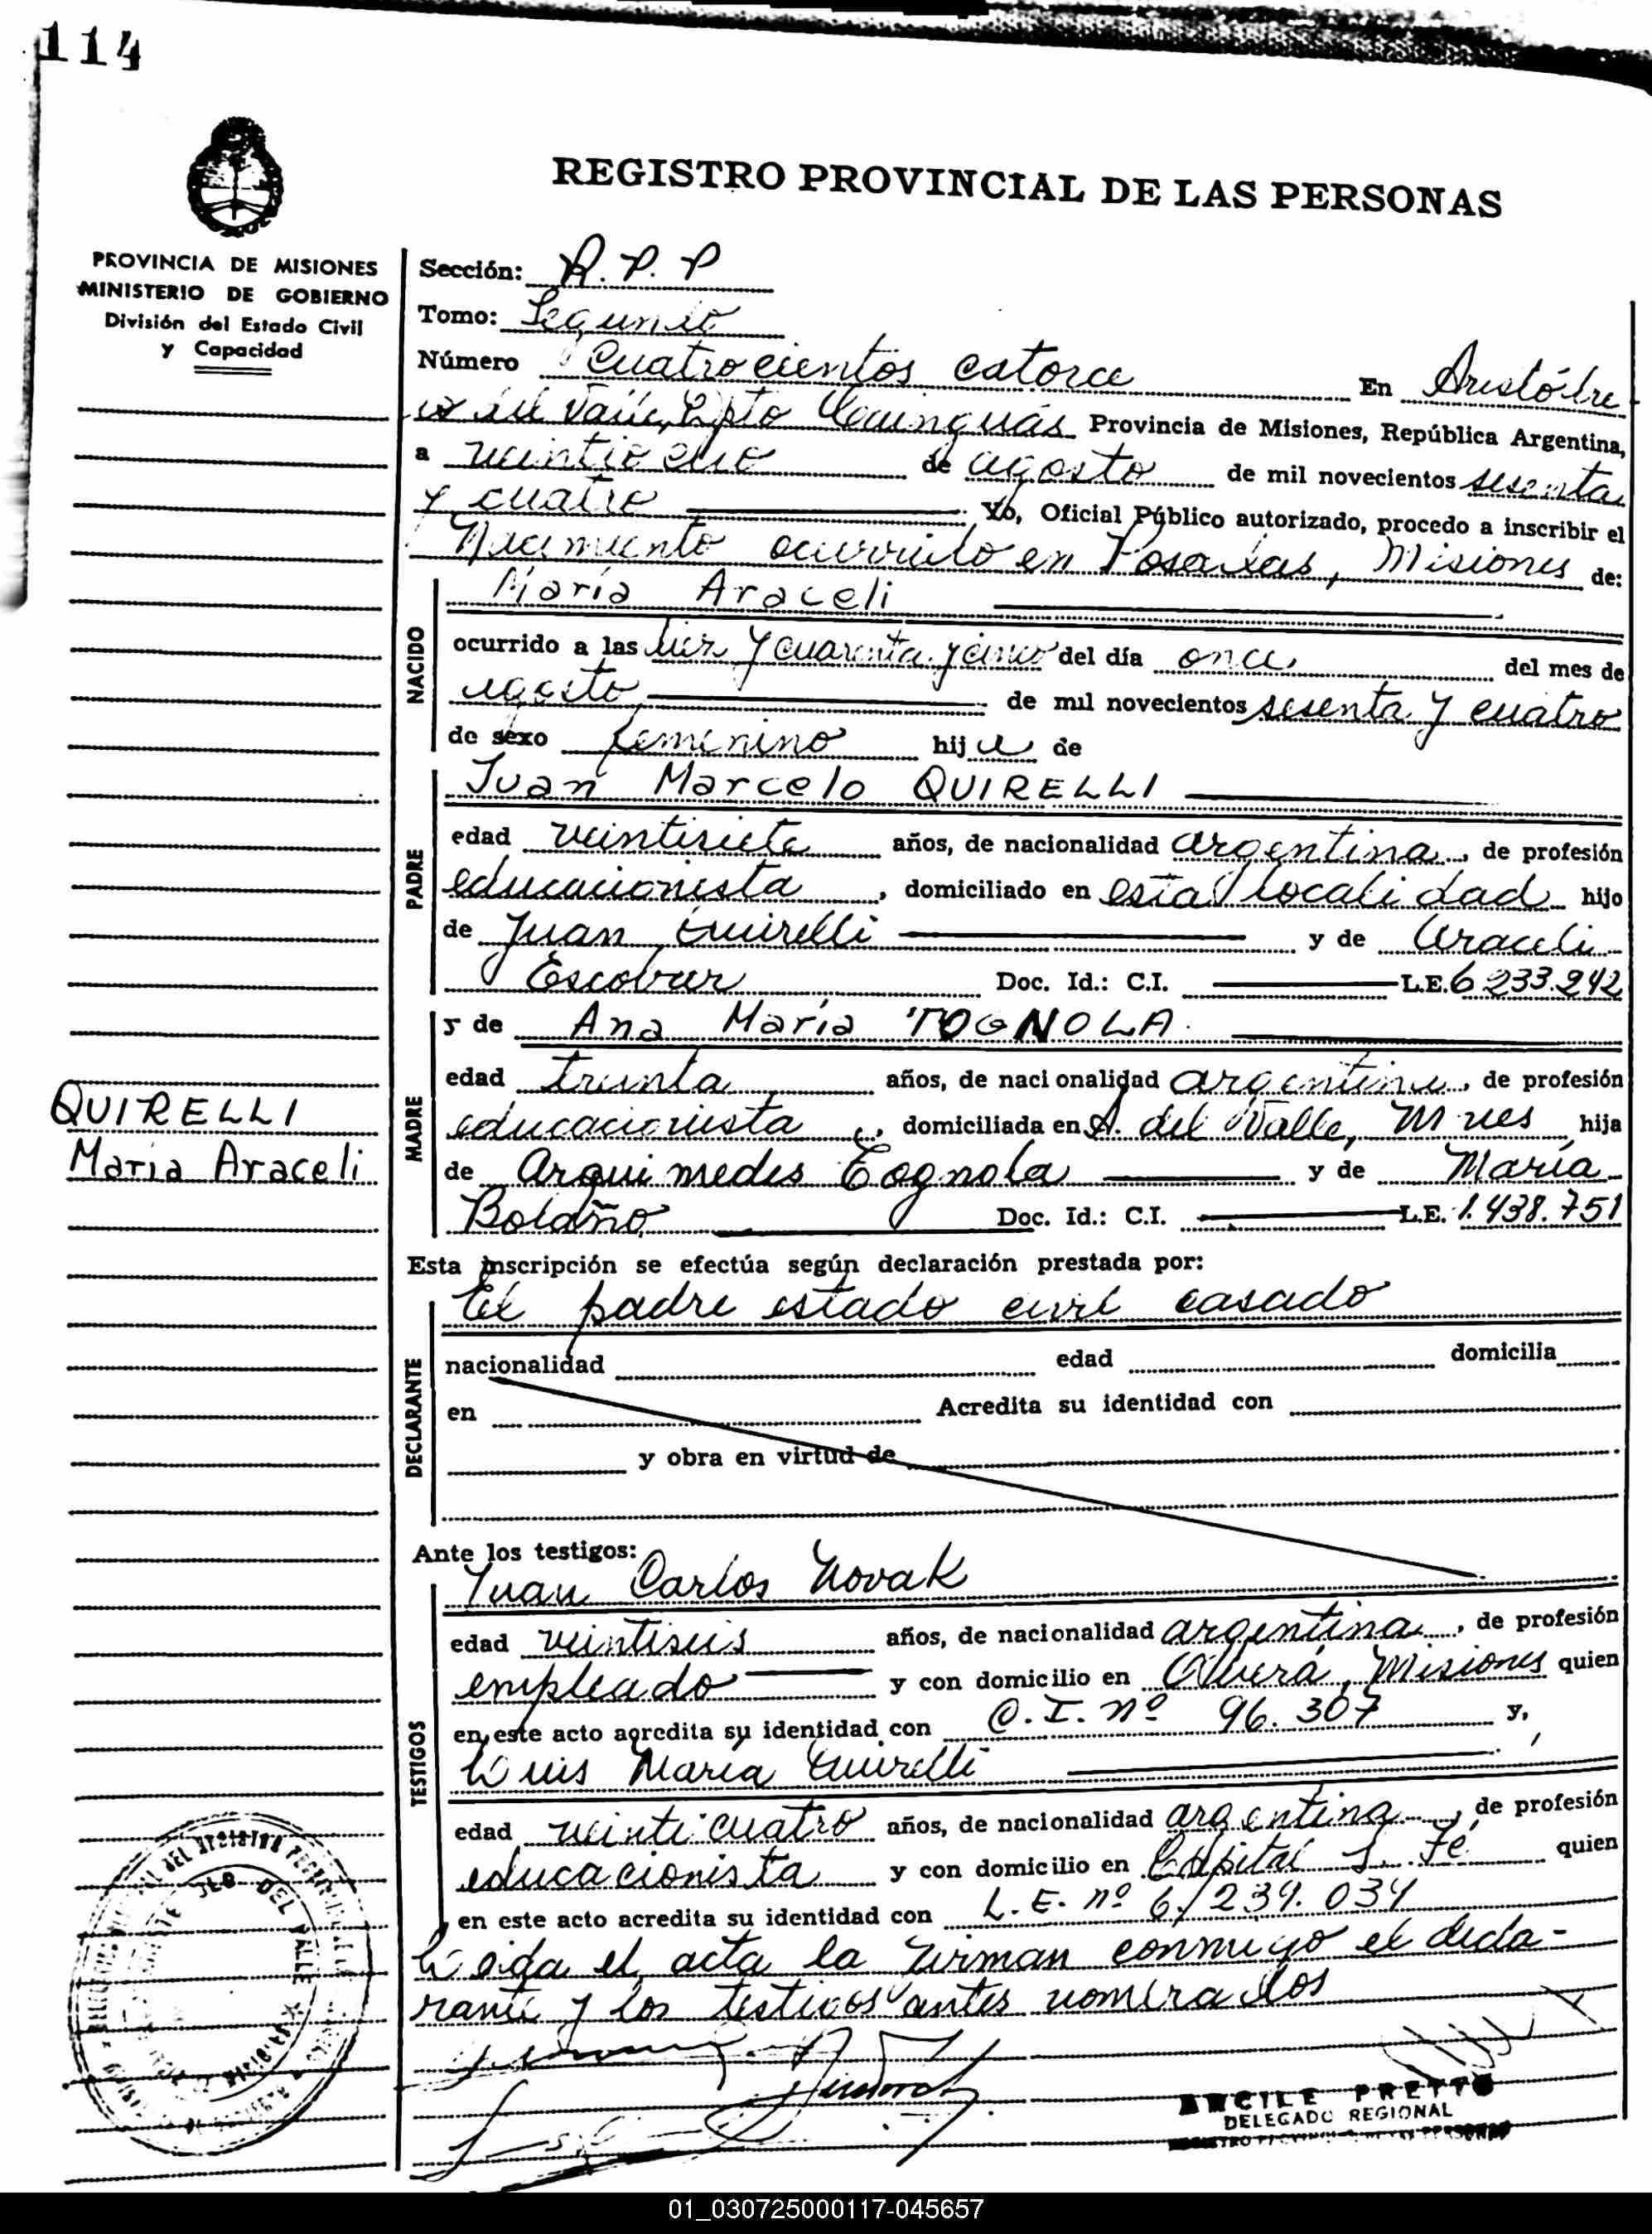 114
REGISTRO PROVINCIAL DE LAS PERSONAS
PROVINCIA DE MISIONES
MINISTERIO DE GOBIERNO
División del Estado Civil
y Capacidad
Sección: R.P.P
Tomo: Segundo
Número Cuatrocientos catorce En Aristóbu
lo del Valle, Dpto Cainguás Provincia de Misiones, República Argentina,
a veintiocho de agosto de mil novecientos sesenta
y cuatro Yo, Oficial Público autorizado, procedo a inscribir el
Nacimiento ocurrido en Posadas, Misiones de:
NACIDO
María Araceli
ocurrido a las diez y cuarenta y cinco del día once del mes de
agosto de mil novecientos sesenta y cuatro
de sexo femenino hija de
PADRE
Juan Marcelo QUIRELLI
edad veintisiete años, de nacionalidad argentina, de profesión
educacionista, domiciliado en esta localidad hijo
de Juan Quirelli y de Araceli
Escobar Doc. Id.: C.I. L.E. 6.233.242
MADRE
y de Ana María TOGNOLA
edad treinta años, de nacionalidad argentina, de profesión
educacionista, domiciliada en A. del Valle, Mnes hija
de Arquimedes Tognola y de María
Bolaño Doc. Id.: C.I. L.E. 1.438.751
QUIRELLI
María Araceli
Esta inscripción se efectúa según declaración prestada por:
DECLARANTE
El padre estado civil casado
nacionalidad edad domicilia
en Acredita su identidad con
y obra en virtud de
Ante los testigos:
TESTIGOS
Juan Carlos Novak
edad veintiseis años, de nacionalidad argentina, de profesión
empleado y con domicilio en Oberá, Misiones quien
en este acto acredita su identidad con C.I. nº 96.307 y,
Luis María Quirelli
edad veinticuatro años, de nacionalidad argentina, de profesión
educacionista y con domicilio en Capital S. Fé quien
en este acto acredita su identidad con L.E. nº 6.239.034
Leída el acta la firman conmigo el decla-
rante y los testigos antes nombrados
DEL VALLE
PRETTO
DELEGADO REGIONAL
01_030725000117-045657